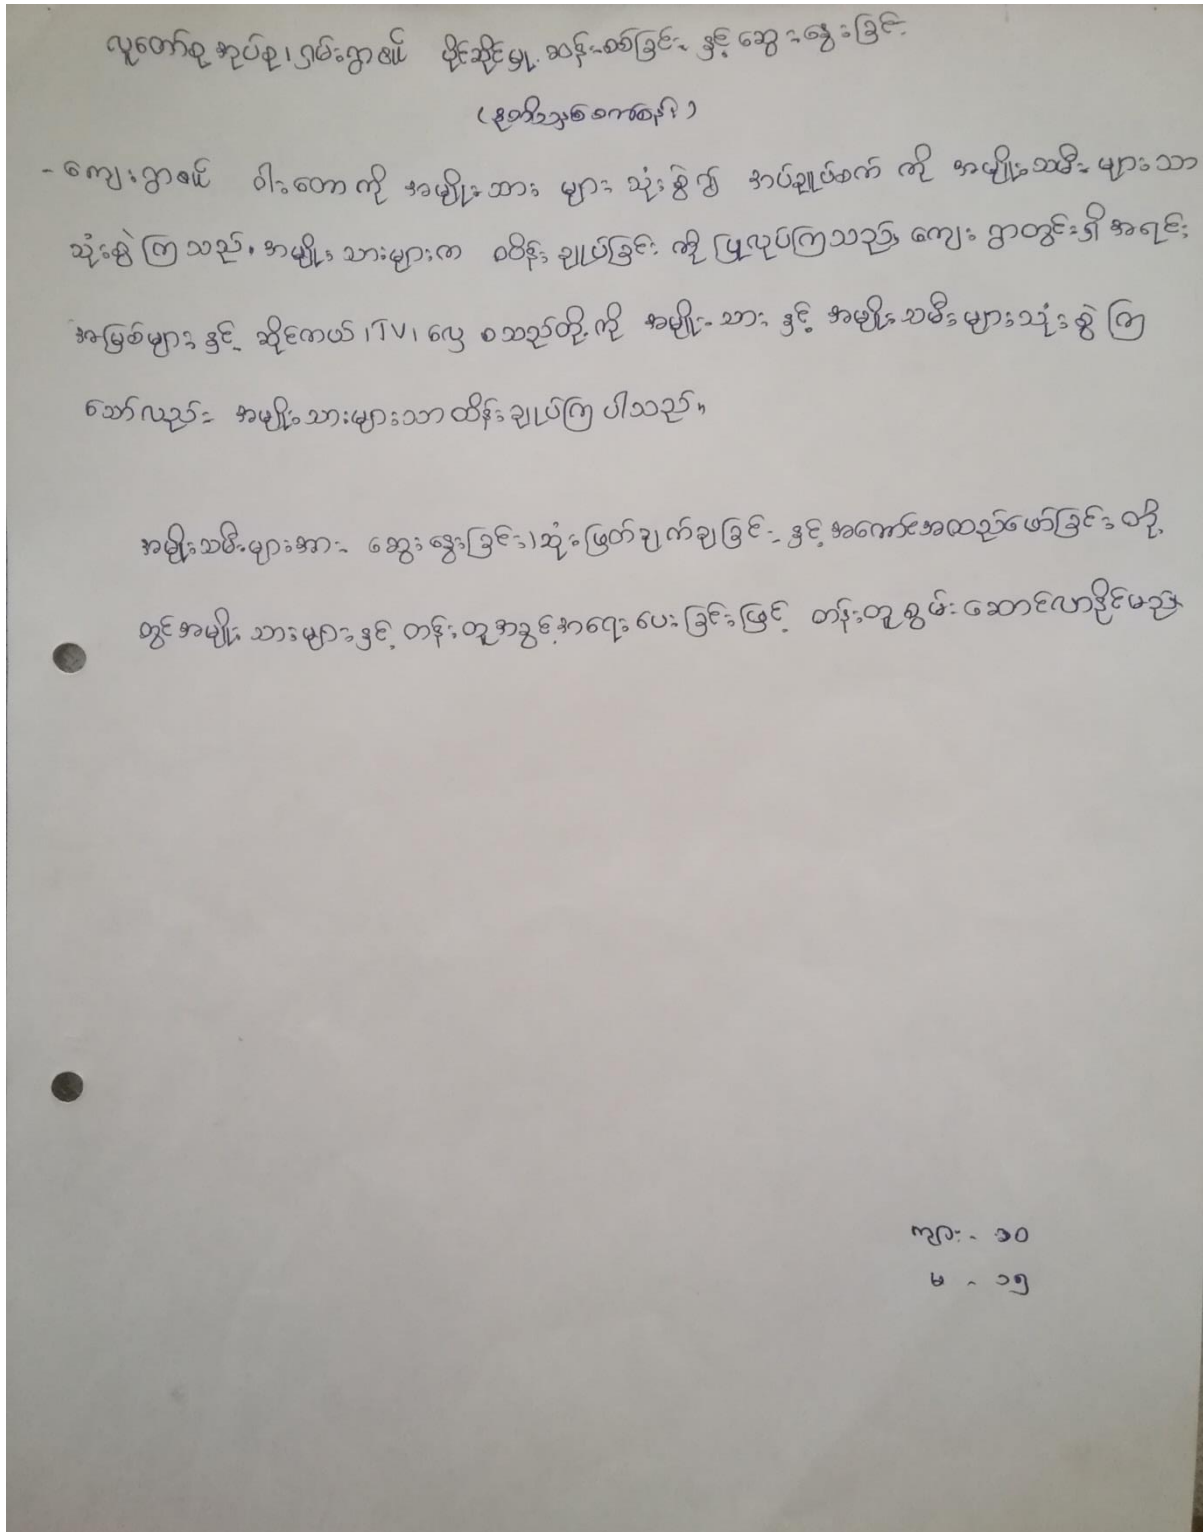 လူတော်စု အုပ်စု၊ ရှမ်းရွာ၏ ပိုင်ဆိုင်မှု ဆန်းစစ်ခြင်း နှင့် ဆွေးနွေးခြင်း
(ဒုတိယ
- ကျေးရွာ၏ ဝါးတောကို အမျိုးသား များ သုံးစွဲ၍ အပ်ချုပ်စက် ကို အမျိုးသမီး များသာ
သုံးစွဲ ကြ သည်။ အမျိုး သားများက ထိန်း ချုပ်ခြင်း ကို ပြုလုပ်ကြသည်၊ ကျေး ရွာတွင်းရှိ အရင်း
အမြစ်များ နှင့် ဆိုင်ကယ် ၊ TV ၊ လှေ စသည်တို့ ကို အမျိုး သား နှင့် အမျိုး သမီး များသုံး စွဲ ကြ
သော်လည်း အမျိုး သားများသာ ထိန်း ချုပ်ကြ ပါသည်။
အမျိုးသမီးများအား ဆွေးနွေးခြင်း၊ ဆုံးဖြတ်ချက်ချခြင်း နှင့် အကောင်အထည်ဖော်ခြင်း တို့
တွင် အမျိုး သားများ နှင့် တန်းတူ အခွင့်အရေး ပေး ခြင်းဖြင့် တန်းတူ စွမ်း ဆောင်လာနိုင်မည်
ကျား - ၁၀
မ - ၁၅